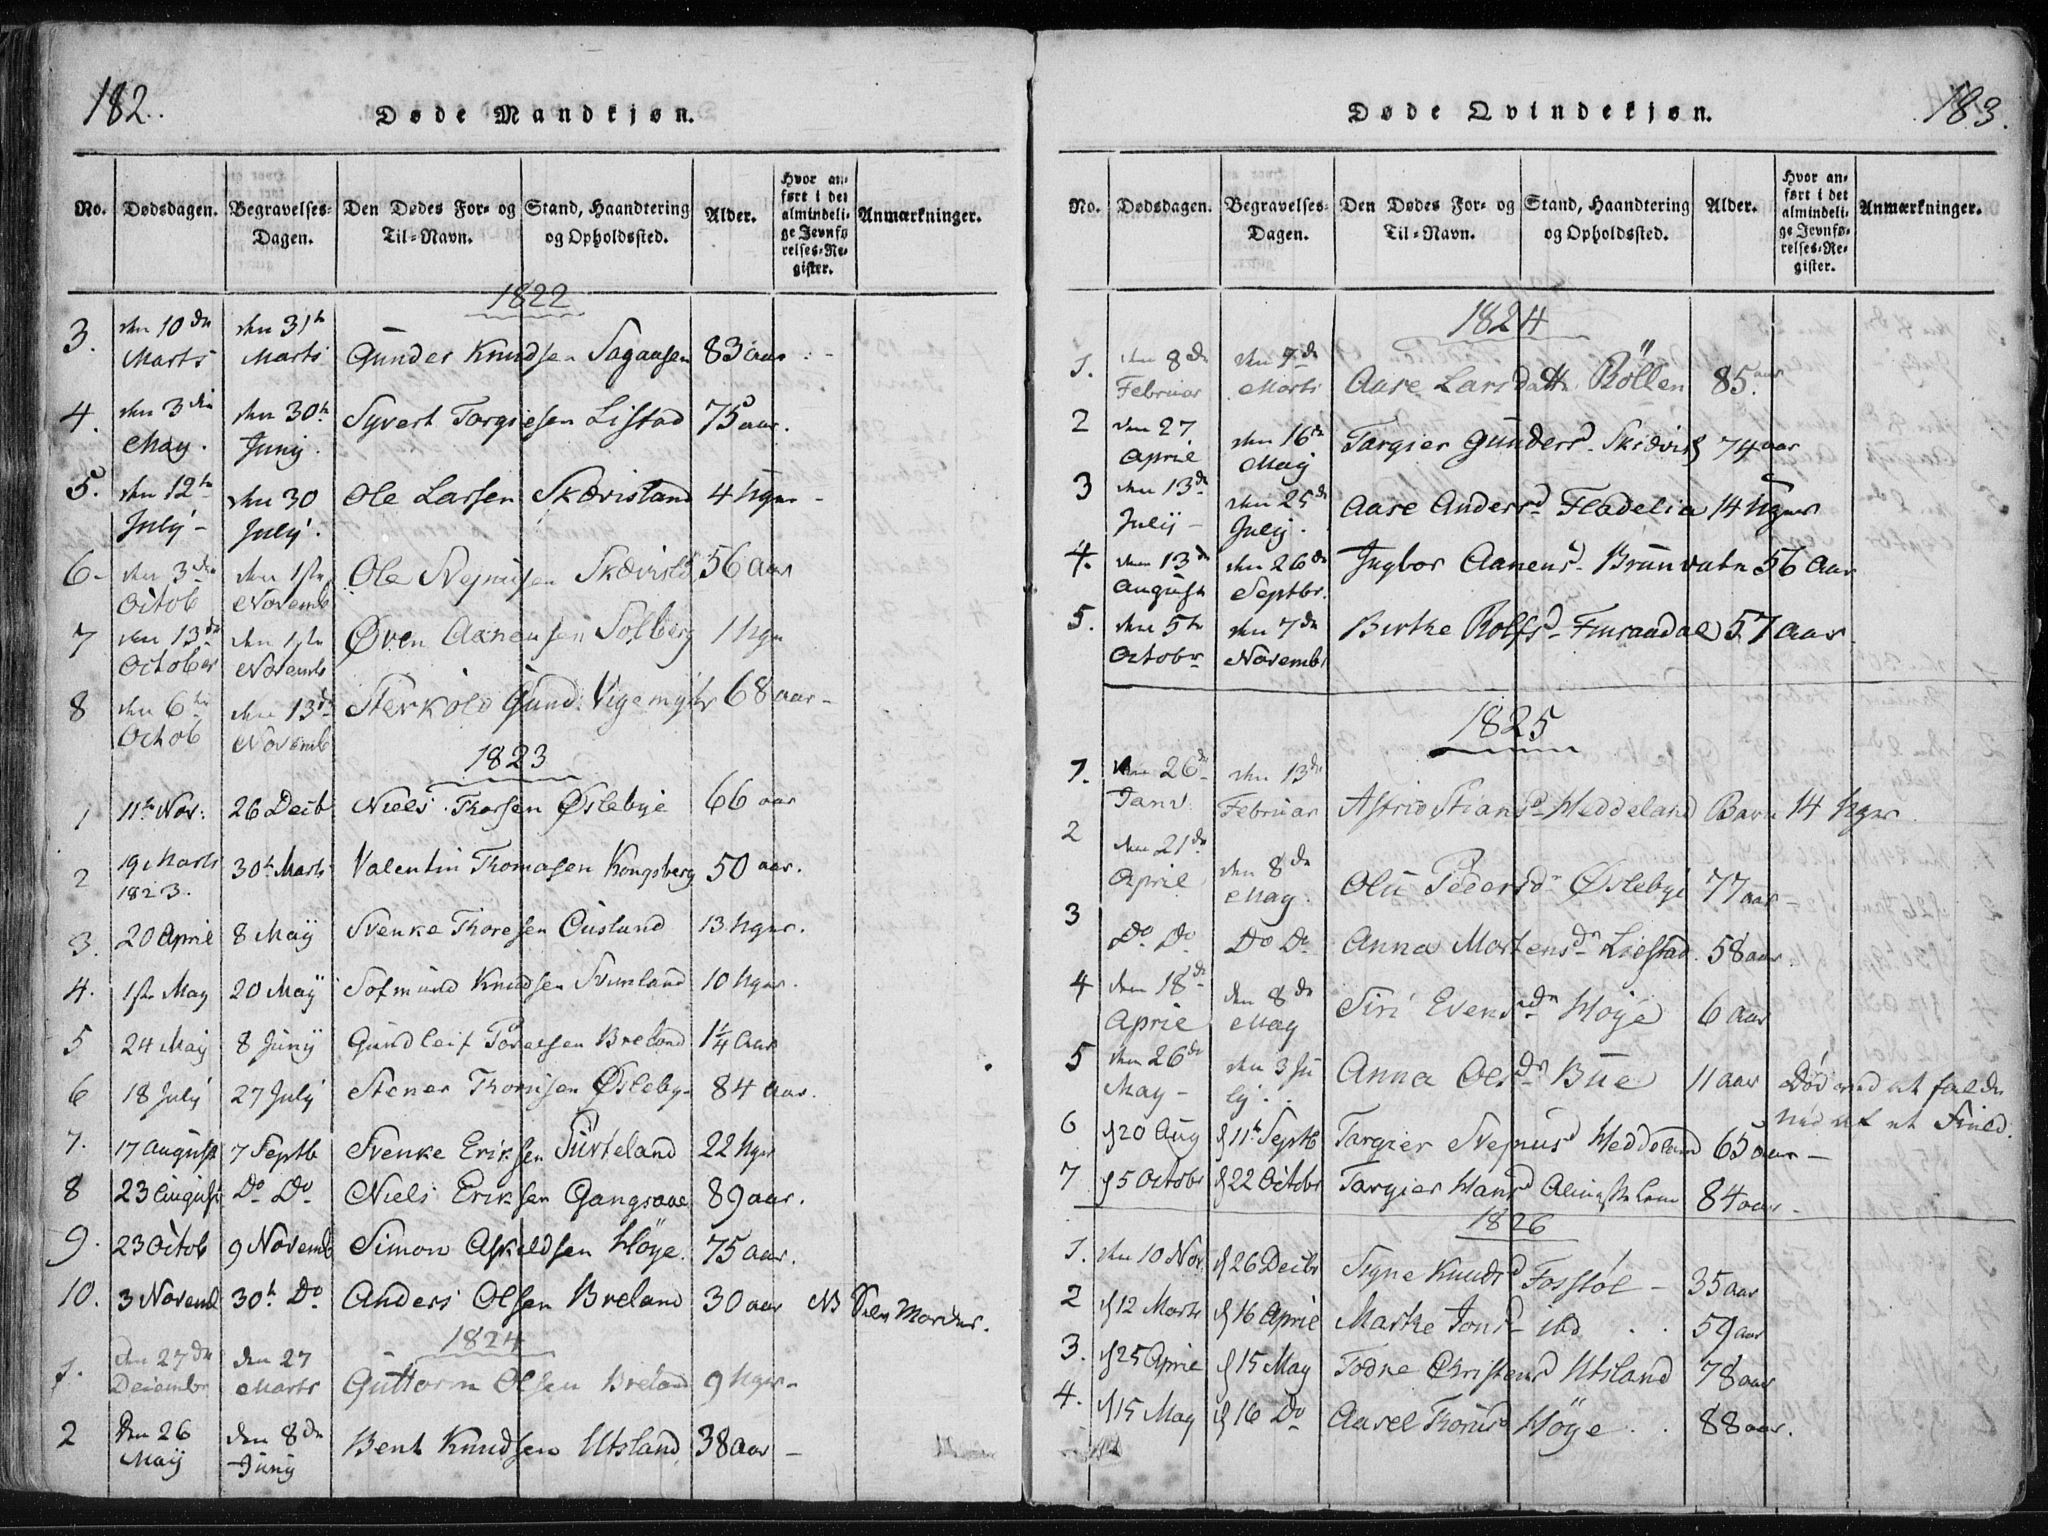 182.
Døde Mandkjøn.
No. Dødsdagen. Begravelses-Dagen. Den Dødes For- og Til-Navn. Stand, Haandtering og Opholdssted. Alder. Hvor anført i det almindelige Jevnførelses-Register. Anmærkninger.
1822
3. den 10de Marts den 31te Marts Gunder Knudsen Sagaasen 83 aar
4. den 3die May. den 30te Juny. Syvert Targiesen Listad 75 aar.
5. den 12te July den 30 July. Ole Larsen Skævisland 4 Uger
6 den 3die Octob den 1ste Novemb Ole 56 aar
7 den 13de October den 1ste Novemb Øven Aanensen Solberg 1 Uge
8 den 6te Octob den 13de Novemb Sterkold Gund: Vigemyhr 68 aar
1823
1 11te Nov: 26 Decb Niels Thorsen Øslebye 66 aar
2 19 Marts 1823. 30te Marts Valentin Thomasen Kongsberg 50 aar.
3. 20 April 8 Maÿ Svenke Thoresen 13 Uger.
4. 1ste May 20 Maÿ Sofmund Knudsen 10 Uger.
5 24 May 8 Junÿ Gundleif Breland 1¼ Aar
6 18 July 27 July Stener Øsleby 84 aar.
7. 17 August 7 Septb Svenke Eriksen 22 Uger
8 23 August Do Do Niels Eriksen Gangsaae 89 aar.
9. 23 Octob 9 Novemb Simon Askeldsen Höye. 75 aar.
10. 3 Novemb 30te Do Anders Olsen Breland 30 aar NB Selv Morder.
1824
1. den 27de Decembr den 27 Marts Guttorm Olsen Breland 9 Uger
2 Den 26 Maÿ den 8de Juny Bent Knudsen Utsland 38 aar
183.
Døde Qvindekjøn.
No. Dødsdagen. Begravelses-Dagen. Den Dødes For- og Til-Navn. Stand, Haandtering og Opholdssted. Alder. Hvor anført i det almindelige Jevnførelses-Register. Anmærkninger.
1824
1. den 8de Februar den 7de Marts Aase Larsdatter Röllen 85 aar.
2 den 27 April den 16de May Targier Gundersd. 74 aar
3 den 13de Julÿ den 25de July. Aase Andersd. 14 Uger
4. den 13de August den 26de Septbr. Ingbor Aanensd. Brunvatn 56 Aar
5. den 5te Octobr den 7de Novemb Birthe Rolfsd. 57 Aar
1825
1. den 26de Janv. den 13de Februar Astrid Stiansd Heddeland Barn 14 Uger.
2 den 21de April den 8de May. Pedersd. Øslebye 77 aar
3 Do Do Do Do Anna Mortensd. 58 aar.
4 den 18de April den 8de May Siri Evensd. Höye 6 aar
5 den 26de May den 3 July Anna Olsd. Bue 11 aar Död ved at falde ned af et Field.
6 d 20 Aug d 11te Septb Targier Heddeland 65 aar
7 d 5 Octobr d 22 Octobr Targier Hansd 84 aar
1826
1. den 10 Nov. d 26 Decbr Signe Knudsd Fosstøl 35 aar
2 d 12 Marts d 16 April Marthe Jonsd ibd 59 aar
3. d 25 April d 15 May Todne Christensd Utsland 78 aar
4. d 15 May d 16 Do Aasel Höye 88 aar.